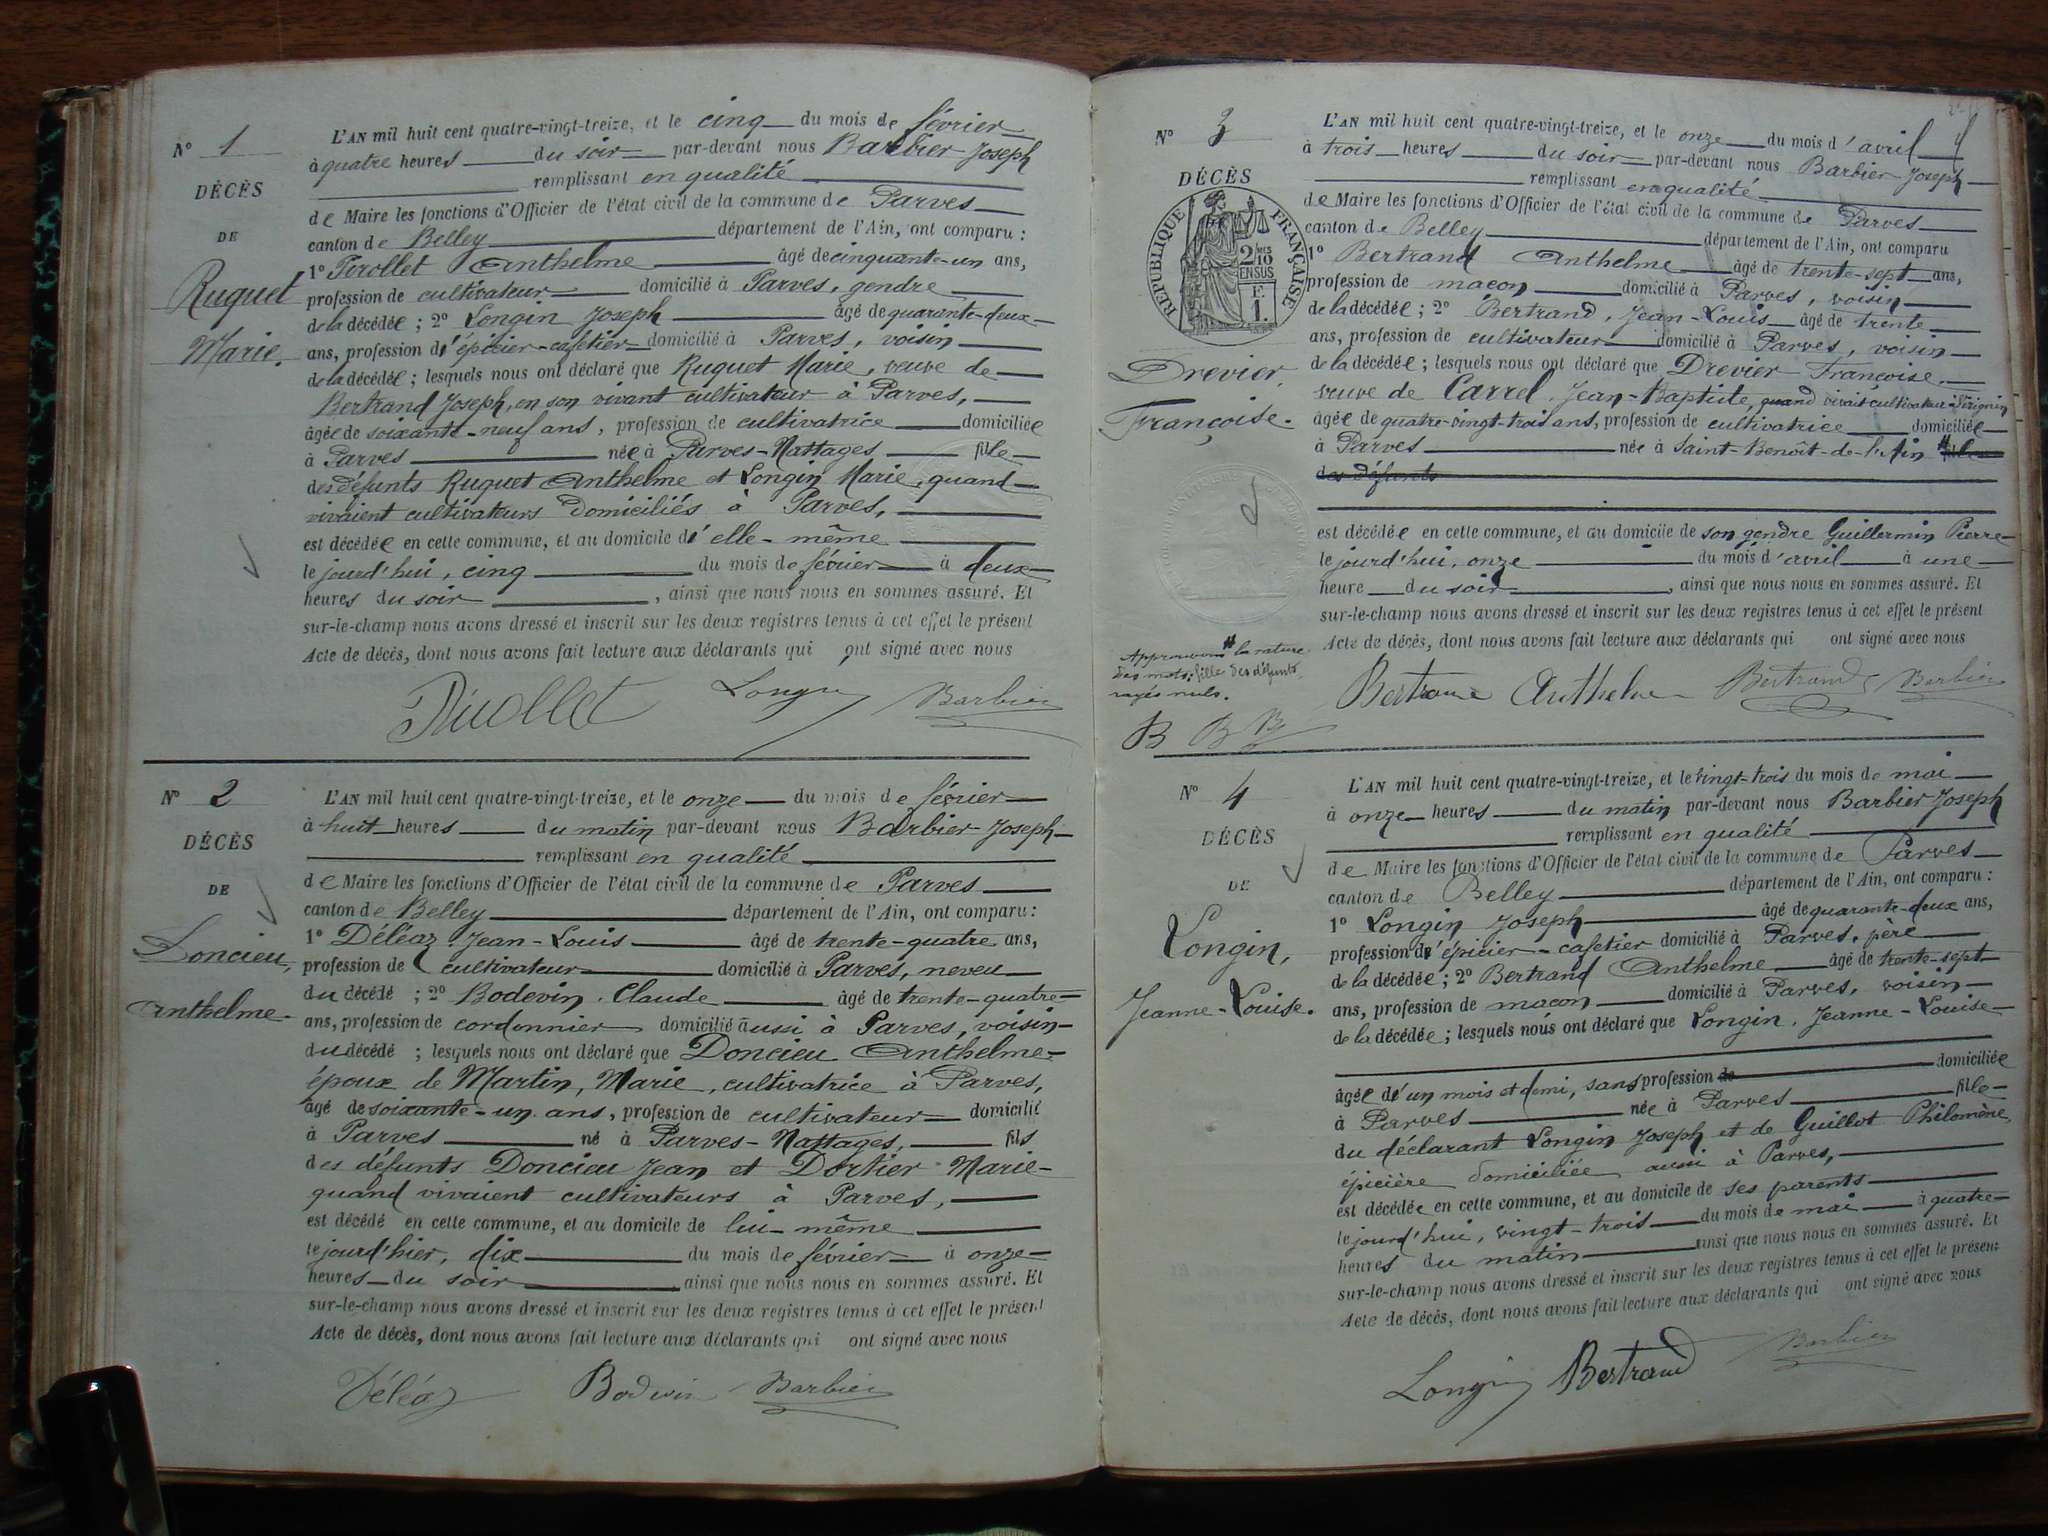 N° 1
DÉCÈS
DE
Ruquet
Marie.
L'AN mil huit cent quatre-vingt-treize, et le cinq du mois de février
à quatre heures du soir par-devant nous Barbier Joseph
remplissant en qualité
de Maire les fonctions d'Officier de l'état civil de la commune de Parves
canton de Belley département de l'Ain, ont comparu :
1° Pirollet Anthelme âgé de cinquante-un ans,
profession de cultivateur domicilié à Parves, gendre
de la décédée ; 2° Longin Joseph âgé de quarante-deux
ans, profession d'épicier-cafetier domicilié à Parves, voisin
de la décédée ; lesquels nous ont déclaré que Ruquet Marie, veuve de
Bertrand Joseph, en son vivant cultivateur à Parves,
âgée de soixante-neuf ans, profession de cultivatrice domiciliée
à Parves née à Parves-Nattages fille
des défunts Ruquet Anthelme et Longin Marie, quand
vivaient cultivateurs domiciliés à Parves,
est décédée en cette commune, et au domicile d'elle-même
le jourd'hui, cinq du mois de février à deux
heures du soir, ainsi que nous nous en sommes assuré. Et
sur-le-champ nous avons dressé et inscrit sur les deux registres tenus à cet effet le présent
Acte de décès, dont nous avons fait lecture aux déclarants qui ont signé avec nous
Longin Barbier
N° 2
DÉCÈS
DE
Doncieu,
Anthelme.
L'AN mil huit cent quatre-vingt-treize, et le onze du mois de février
à huit heures du matin par-devant nous Barbier Joseph
remplissant en qualité
de Maire les fonctions d'Officier de l'état civil de la commune de Parves
canton de Belley département de l'Ain, ont comparu :
1° Déléaz Jean-Louis âgé de trente-quatre ans,
profession de cultivateur domicilié à Parves, neveu
du décédé ; 2° Bodevin Claude âgé de trente-quatre
ans, profession de cordonnier domicilié aussi à Parves, voisin
du décédé ; lesquels nous ont déclaré que Doncieu Anthelme
époux de Martin, Marie, cultivatrice à Parves,
âgé de soixante-un ans, profession de cultivateur domicilié
à Parves né à Parves-Nattages, fils
des défunts Doncieu Jean et Dortier Marie
quand vivaient cultivateurs à Parves,
est décédé en cette commune, et au domicile de lui-même
le jourd'hier, dix du mois de février à onze
heures du soir ainsi que nous nous en sommes assuré. Et
sur-le-champ nous avons dressé et inscrit sur les deux registres tenus à cet effet le présent
Acte de décès, dont nous avons fait lecture aux déclarants qui ont signé avec nous
Déléaz Bodevin Barbier
N° 3
DÉCÈS
RÉPUBLIQUE FRANÇAISE
2/10 EN SUS
F.
1.
Drevier,
Françoise.
L'AN mil huit cent quatre-vingt-treize, et le onze du mois d'avril
à trois heures du soir par-devant nous Barbier Joseph
remplissant en qualité
de Maire les fonctions d'Officier de l'état civil de la commune de Parves
canton de Belley département de l'Ain, ont comparu
1° Bertrand Anthelme âgé de trente-sept ans,
profession de maçon domicilié à Parves, voisin
de la décédée ; 2° Bertrand, Jean-Louis âgé de trente
ans, profession de cultivateur domicilié à Parves, voisin
de la décédée ; lesquels nous ont déclaré que Drevier Françoise,
veuve de Carrel, Jean-Baptiste, quand vivait cultivateur à
âgée de quatre-vingt-trois ans, profession de cultivatrice domiciliée
à Parves née à Saint-Benoît-de-l'Ain fille
des défunts
est décédée en cette commune, et au domicile de son gendre Guillermin Pierre
le jourd'hui, onze du mois d'avril à une
heure du soir, ainsi que nous nous en sommes assuré. Et
sur-le-champ nous avons dressé et inscrit sur les deux registres tenus à cet effet le présent
Acte de décès, dont nous avons fait lecture aux déclarants qui ont signé avec nous
Approuvons la rature
des mots: fille des défunts,
rayés nuls.
B B B
Bertrand Anthelme Bertrand Barbier
N° 4
DÉCÈS
DE
Longin,
Jeanne-Louise.
L'AN mil huit cent quatre-vingt-treize, et le vingt-trois du mois de mai
à onze heures du matin par-devant nous Barbier Joseph
remplissant en qualité
de Maire les fonctions d'Officier de l'état civil de la commune de Parves
canton de Belley département de l'Ain, ont comparu :
1° Longin Joseph âgé de quarante-deux ans,
profession d'épicier-cafetier domicilié à Parves, père
de la décédée ; 2° Bertrand Anthelme âgé de trente-sept
ans, profession de maçon domicilié à Parves, voisin
de la décédée ; lesquels nous ont déclaré que Longin, Jeanne-Louise
âgée d'un mois et demi, sans profession de domiciliée
à Parves née à Parves fille
du déclarant Longin Joseph et de Guillot Philomène,
épicière domiciliée aussi à Parves,
est décédée en cette commune, et au domicile de ses parents
le jourd'hui, vingt-trois du mois de mai à quatre
heures du matin ainsi que nous nous en sommes assuré. Et
sur-le-champ nous avons dressé et inscrit sur les deux registres tenus à cet effet le présent
Acte de décès, dont nous avons fait lecture aux déclarants qui ont signé avec nous
Longin Bertrand Barbier